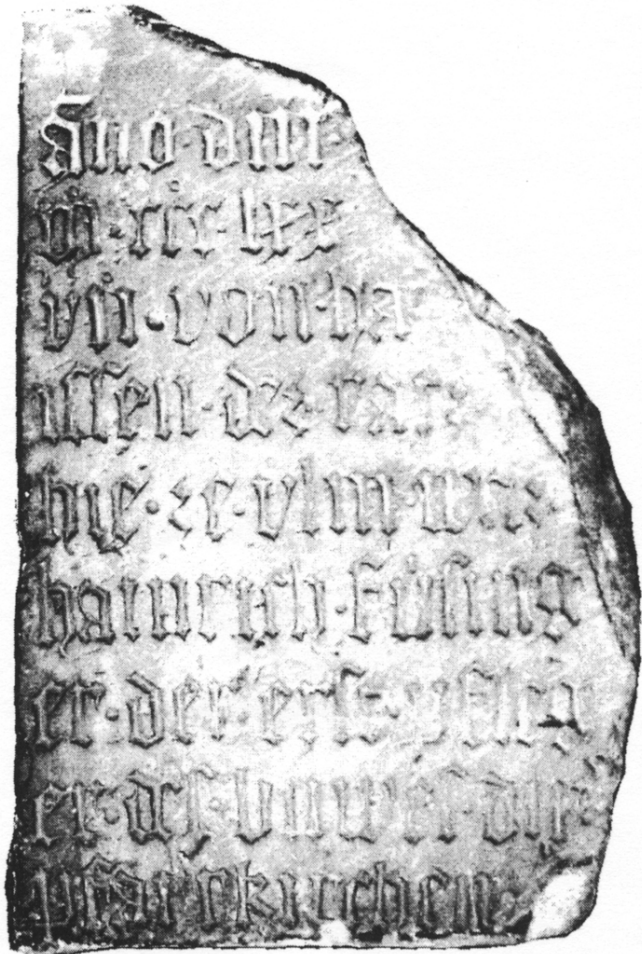 Ano · dm
m · ccc · lxx
vii · von · ha
issen · dez · rat
hie · ze · ulm · waz
hainrich · füsing
er · der · erst · pfleg
er · dez · buwes · dir
pfarrkirchen ·